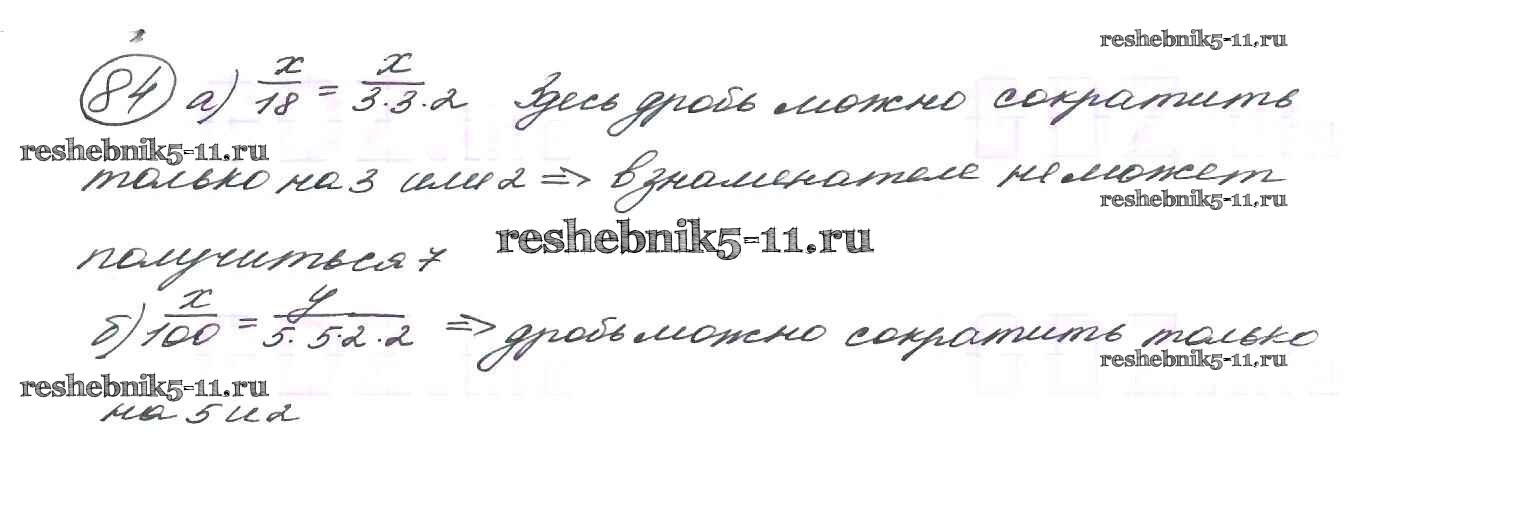 reshebnik5-11.ru
84 а) x/18 = x/3·3·2 Здесь дробь можно сократить
reshebnik5-11.ru
только на 3 или 2 => в знаменателе не может
reshebnik5-11.ru
reshebnik5-11.ru
получиться 7
б) x/100 = y/5·5·2·2 => дробь можно сократить только
reshebnik5-11.ru
reshebnik5-11.ru
на 5 и 2